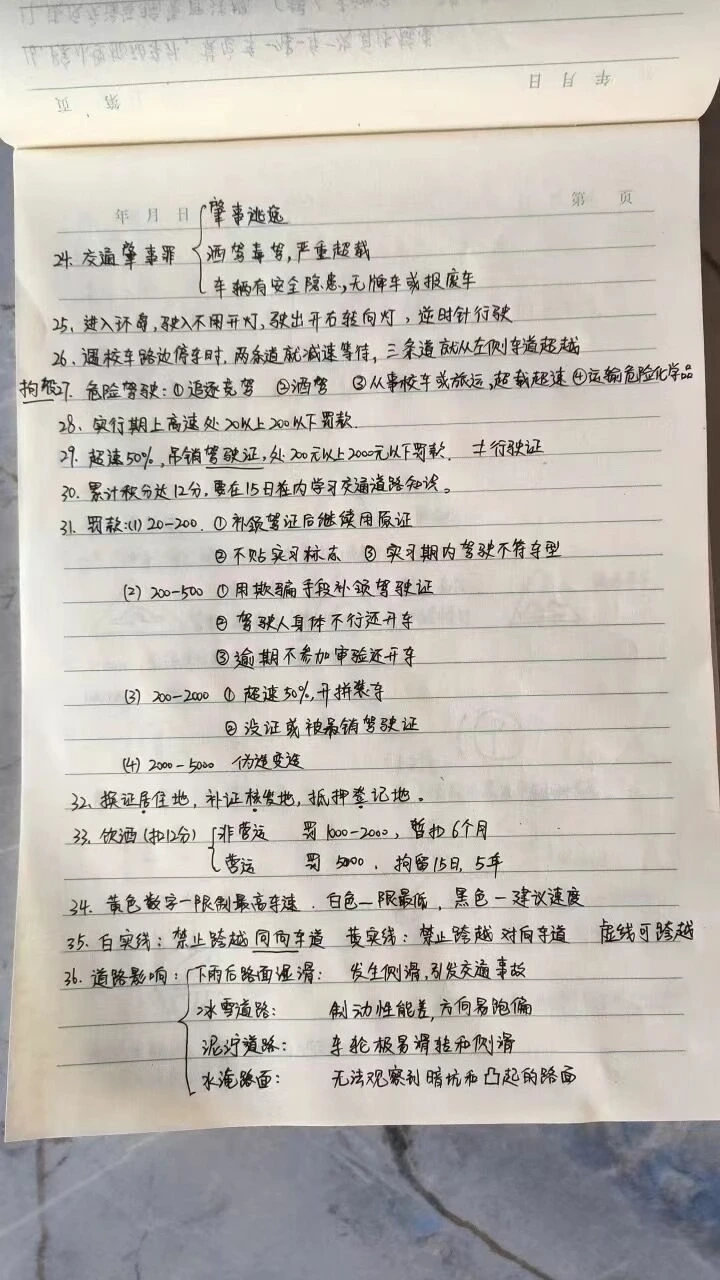 年 月 日
第 页
年 月 日 第 页
肇事逃逸
24. 交通肇事罪 酒驾毒驾,严重超载
车辆有安全隐患,无牌车或报废车
25. 进入环岛,驶入不用开灯,驶出开右转向灯,逆时针行驶
26. 遇校车路边停车时,两条道就减速等待,三条道就从左侧车道超越
拘役27. 危险驾驶:①追逐竞驾 ②酒驾 ③从事校车或旅运,超载超速 ④运输危险化学品
28. 实行期上高速处20以上200以下罚款.
29. 超速50%,吊销驾驶证,处200元以上2000元以下罚款. ≠行驶证
30. 累计积分达12分,要在15日在内学习交通道路知识。
31. 罚款:(1) 20-200. ①补领驾证后继续用原证
②不贴实习标志 ③实习期内驾驶不符车型
(2) 200-500 ①用欺骗手段补领驾驶证
②驾驶人身体不行还开车
③逾期不参加审验还开车
(3) 200-2000 ①超速50%,开拼装车
②没证或被吊销驾驶证
(4) 2000-5000 伪造变造
32. 换证居住地,补证核发地,抵押登记地。
33. 饮酒(扣12分) 非营运 罚1000-2000,暂扣6个月
营运 罚5000.拘留15日,5年
34. 黄色数字一限制最高车速.白色一限最低,黑色一建议速度
35. 白实线:禁止跨越同向车道 黄实线:禁止跨越对向车道 虚线可跨越
36. 道路影响: 下雨后路面湿滑: 发生侧滑,引发交通事故
冰雪道路: 制动性能差,方向易跑偏
泥泞道路: 车轮极易滑转和侧滑
水淹路面: 无法观察到暗坑和凸起的路面